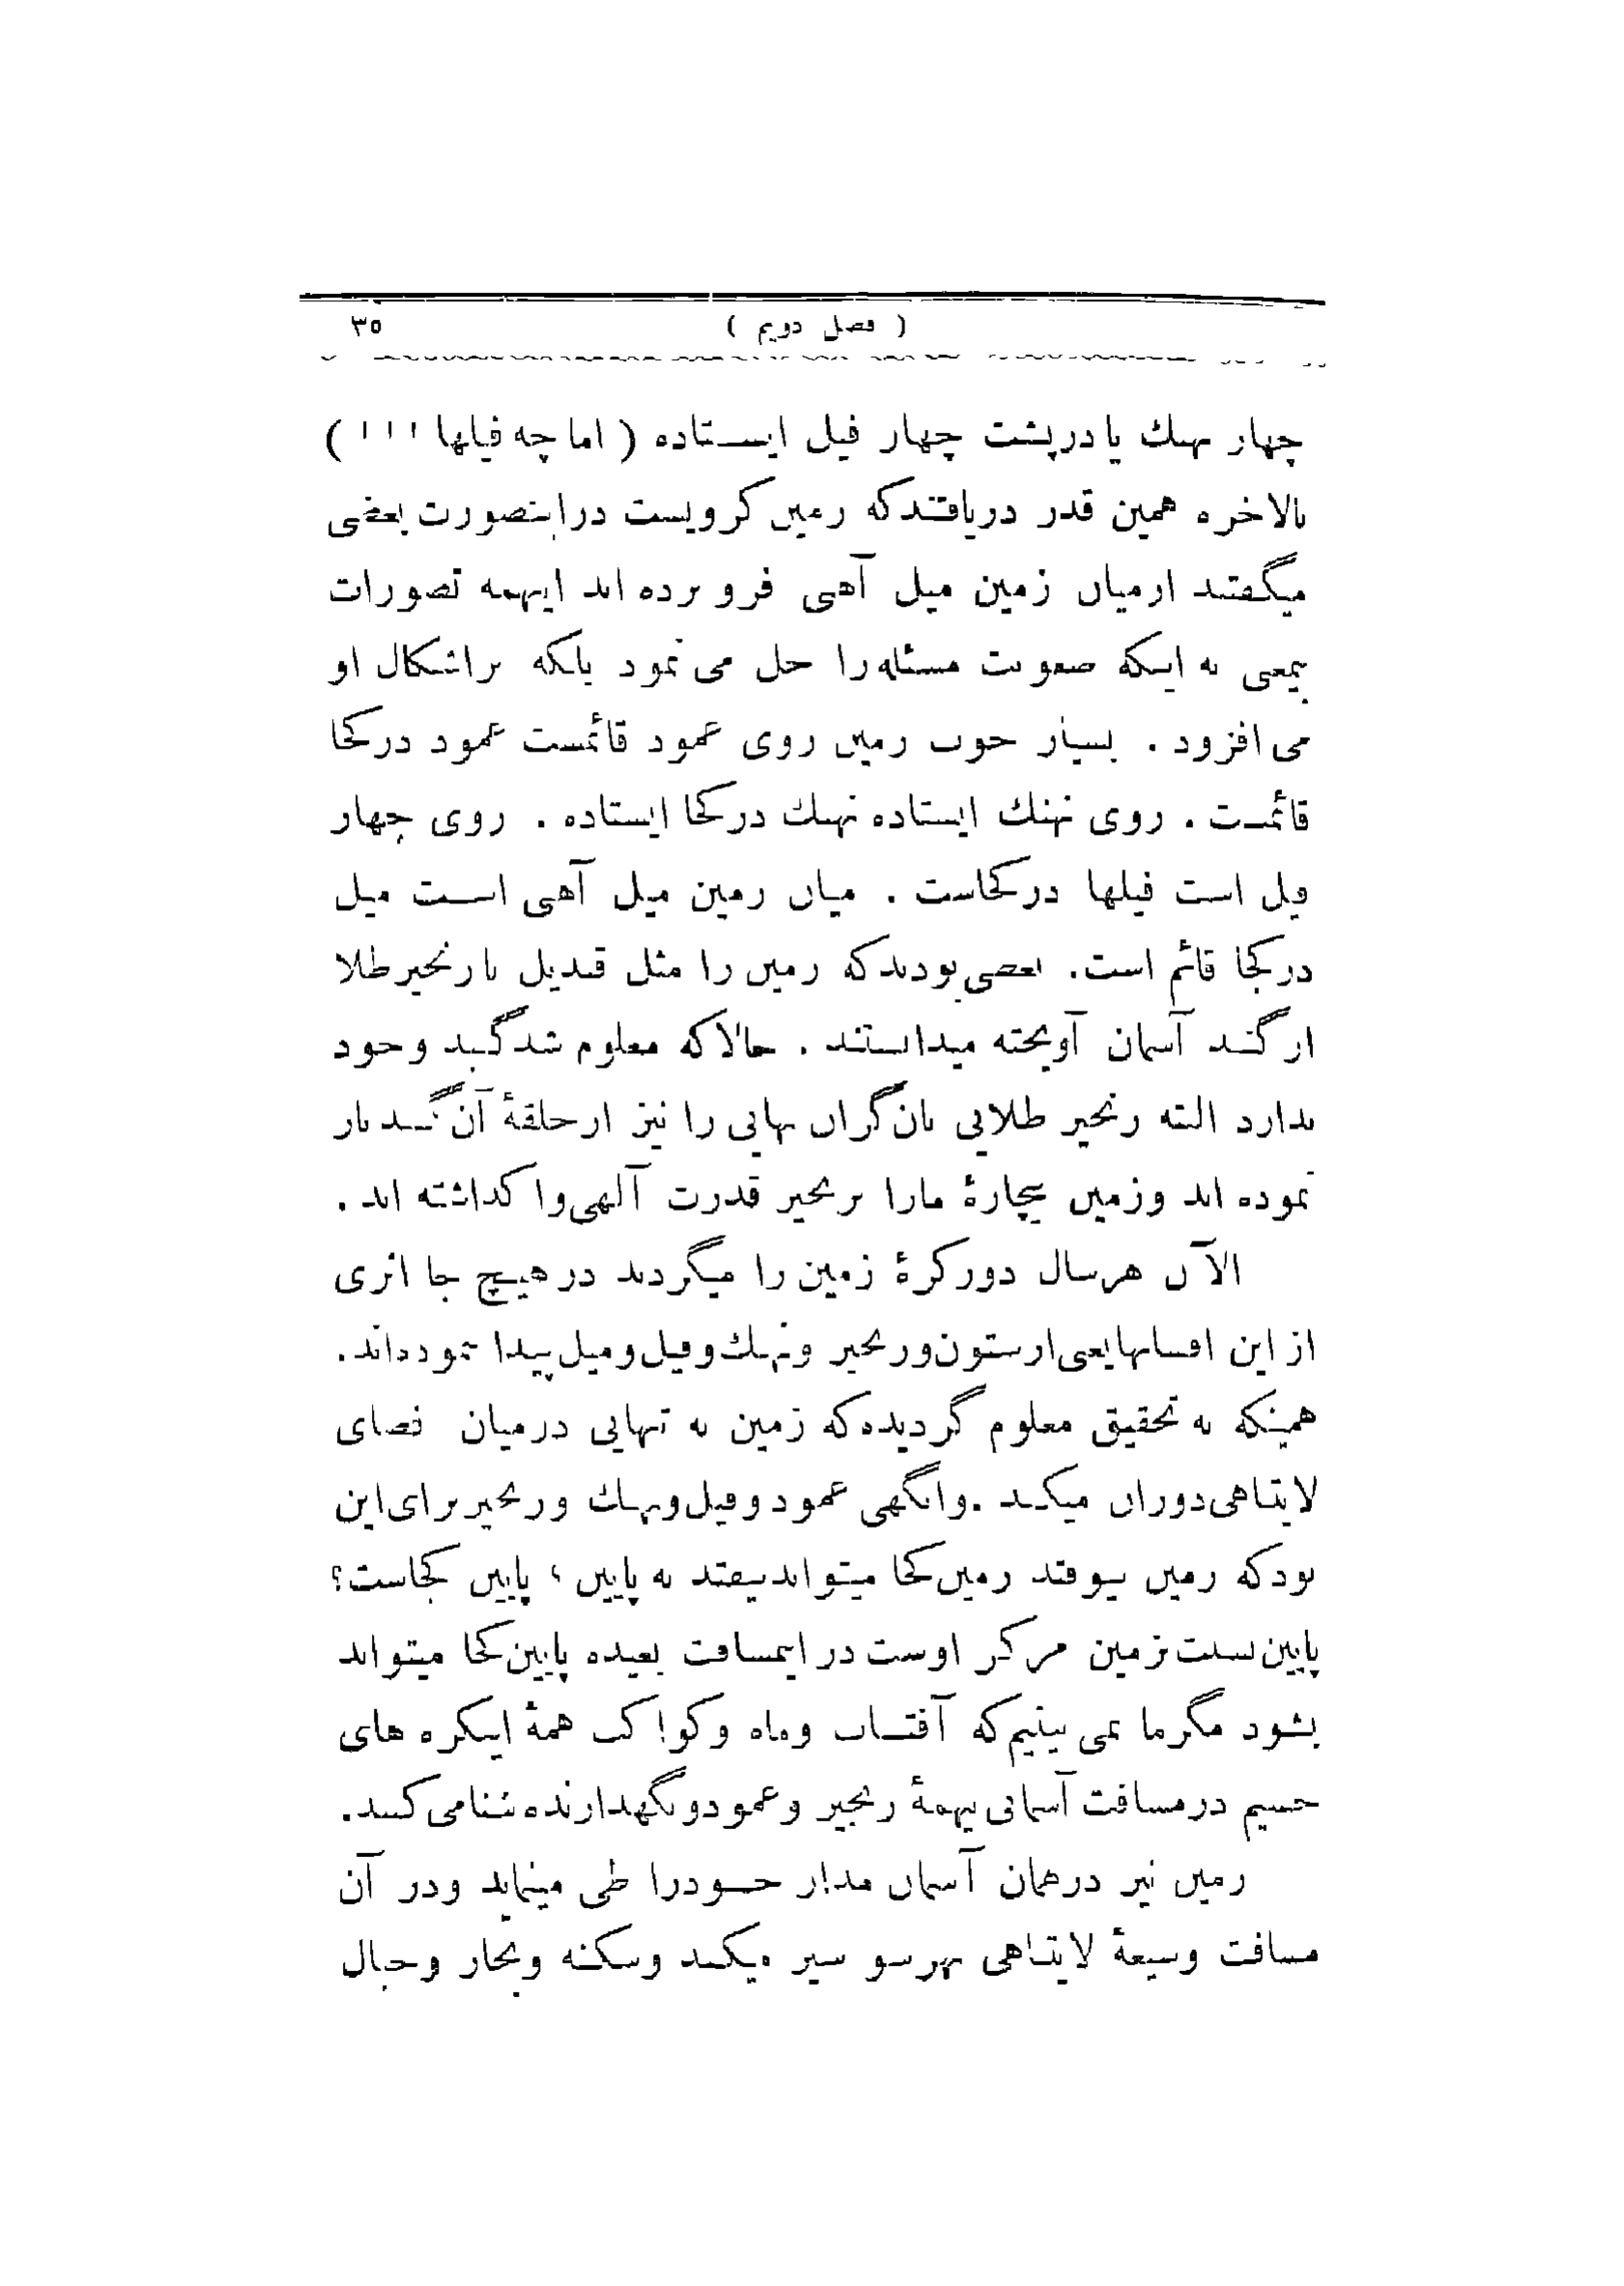 ( فصل دویم ) ۳۵
چهار نهنك یا در پشت چهار فیل ایستاده ( اما چه فیلها ! ! ! )
بالاخره همین قدر دریافتند که زمین کرویست در اینصورت بعضی
میگفتند از میان زمین میل آهنی فرو برده اند اینهمه تصورات
بیمعنی نه اینکه صعوبت مسئله را حل می نمود بلکه بر اشکال او
می افزود . بسیار خوب زمین روی عمود قائمست عمود در کجا
قائمست . روی نهنك ایستاده نهنك در کجا ایستاده . روی چهار
فیل است فیلها در کجاست . میان زمین میل آهنی است میل
در کجا قائم است. بعضی بودند که زمین را مثل قندیل با زنجیر طلا
از گنبد آسمان آویخته میدانستند . حالا که معلوم شد گنبد وجود
ندارد البته زنجیر طلایی بان گران بهایی را نیز از حلقهٔ آن گنبد باز
نموده اند و زمین بیچارهٔ مارا بزنجیر قدرت آلهی وا گذاشته اند .
الآن هر سال دور کرهٔ زمین را میگردند در هیچ جا اثری
از این افسانها یعنی از ستون و زنجیر و نهنك و فیل و میل پیدا ننموده‌اند.
همینکه به تحقیق معلوم گردیده که زمین به تنهایی در میان فضای
لایتناهی دوران میکند . وانگهی عمود و فیل و نهنك و زنجیر برای این
بود که زمین نیوفتد زمین کجا میتواند بیفتد به پایین ، پایین کجاست؟
پایین نسبت بزمین مرکز اوست در اینمسافت بعیده پایین کجا میتواند
بشود مگر ما نمی بینیم که آفتاب و ماه و کواکب همهٔ اینکره های
جسیم در مسافت آسمانی بیهمهٔ زنجیر و عمود و نگهدارنده شنا می کنند.
زمین نیز در همان آسمان مدار خود را طی مینماید و در آن
مسافت وسیعهٔ لایتناهی بهر سو سیر میکند و سکنه و بحار و جبال